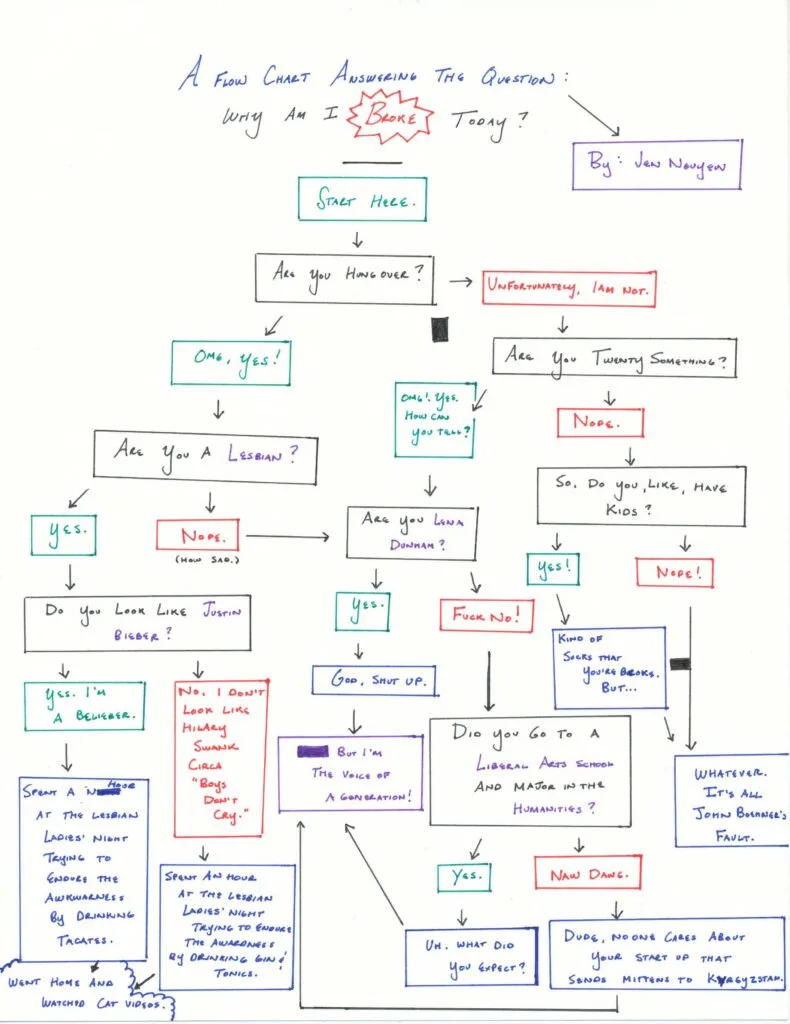 A FLOW CHART ANSWERING THE QUESTION:
WHY AM I BROKE TODAY?
BY: JEN NGUYEN
START HERE.
ARE YOU HUNGOVER?
UNFORTUNATELY, I AM NOT.
OMG, YES!
ARE YOU TWENTYSOMETHING?
OMG! YES.
HOW CAN
YOU TELL?
NOPE.
ARE YOU A LESBIAN?
SO, DO YOU, LIKE, HAVE
KIDS?
YES.
NOPE.
(HOW SAD.)
ARE YOU LENA
DUNHAM?
YES!
NOPE!
DO YOU LOOK LIKE JUSTIN
BIEBER?
YES.
FUCK NO!
KIND OF
SUCKS THAT
YOU'RE BROKE.
BUT...
YES. I'M
A BELIEBER.
NO. I DON'T
LOOK LIKE
HILARY
SWANK
CIRCA
"BOYS
DON'T
CRY."
GOD, SHUT UP.
BUT I'M
THE VOICE OF
A GENERATION!
DID YOU GO TO A
LIBERAL ARTS SCHOOL
AND MAJOR IN THE
HUMANITIES?
WHATEVER.
IT'S ALL
JOHN BOEHNER'S
FAULT.
SPENT A HOUR
AT THE LESBIAN
LADIES' NIGHT
TRYING TO
ENDURE THE
AWKWARNESS
BY DRINKING
TACATES.
SPENT AN HOUR
AT THE LESBIAN
LADIES' NIGHT
TRYING TO ENDURE
THE AWARDNESS
BY DRINKING GIN &
TONICS.
YES.
NAW DAWG.
UH. WHAT DID
YOU EXPECT?
DUDE, NO ONE CARES ABOUT
YOUR START UP THAT
SENDS MITTENS TO KYRGYZSTAN.
WENT HOME AND
WATCHED CAT VIDEOS.